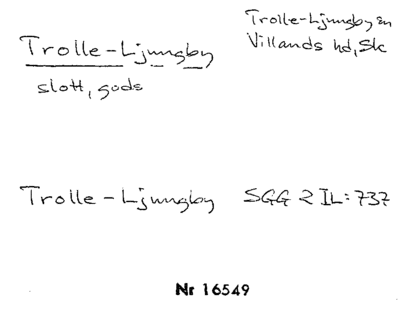 Trolle-Ljungby
slott, gods
Trolle-Ljungby sn
Villands hd, Sk
Trolle-Ljungby SGG 2 IL: 737
Nr 16549